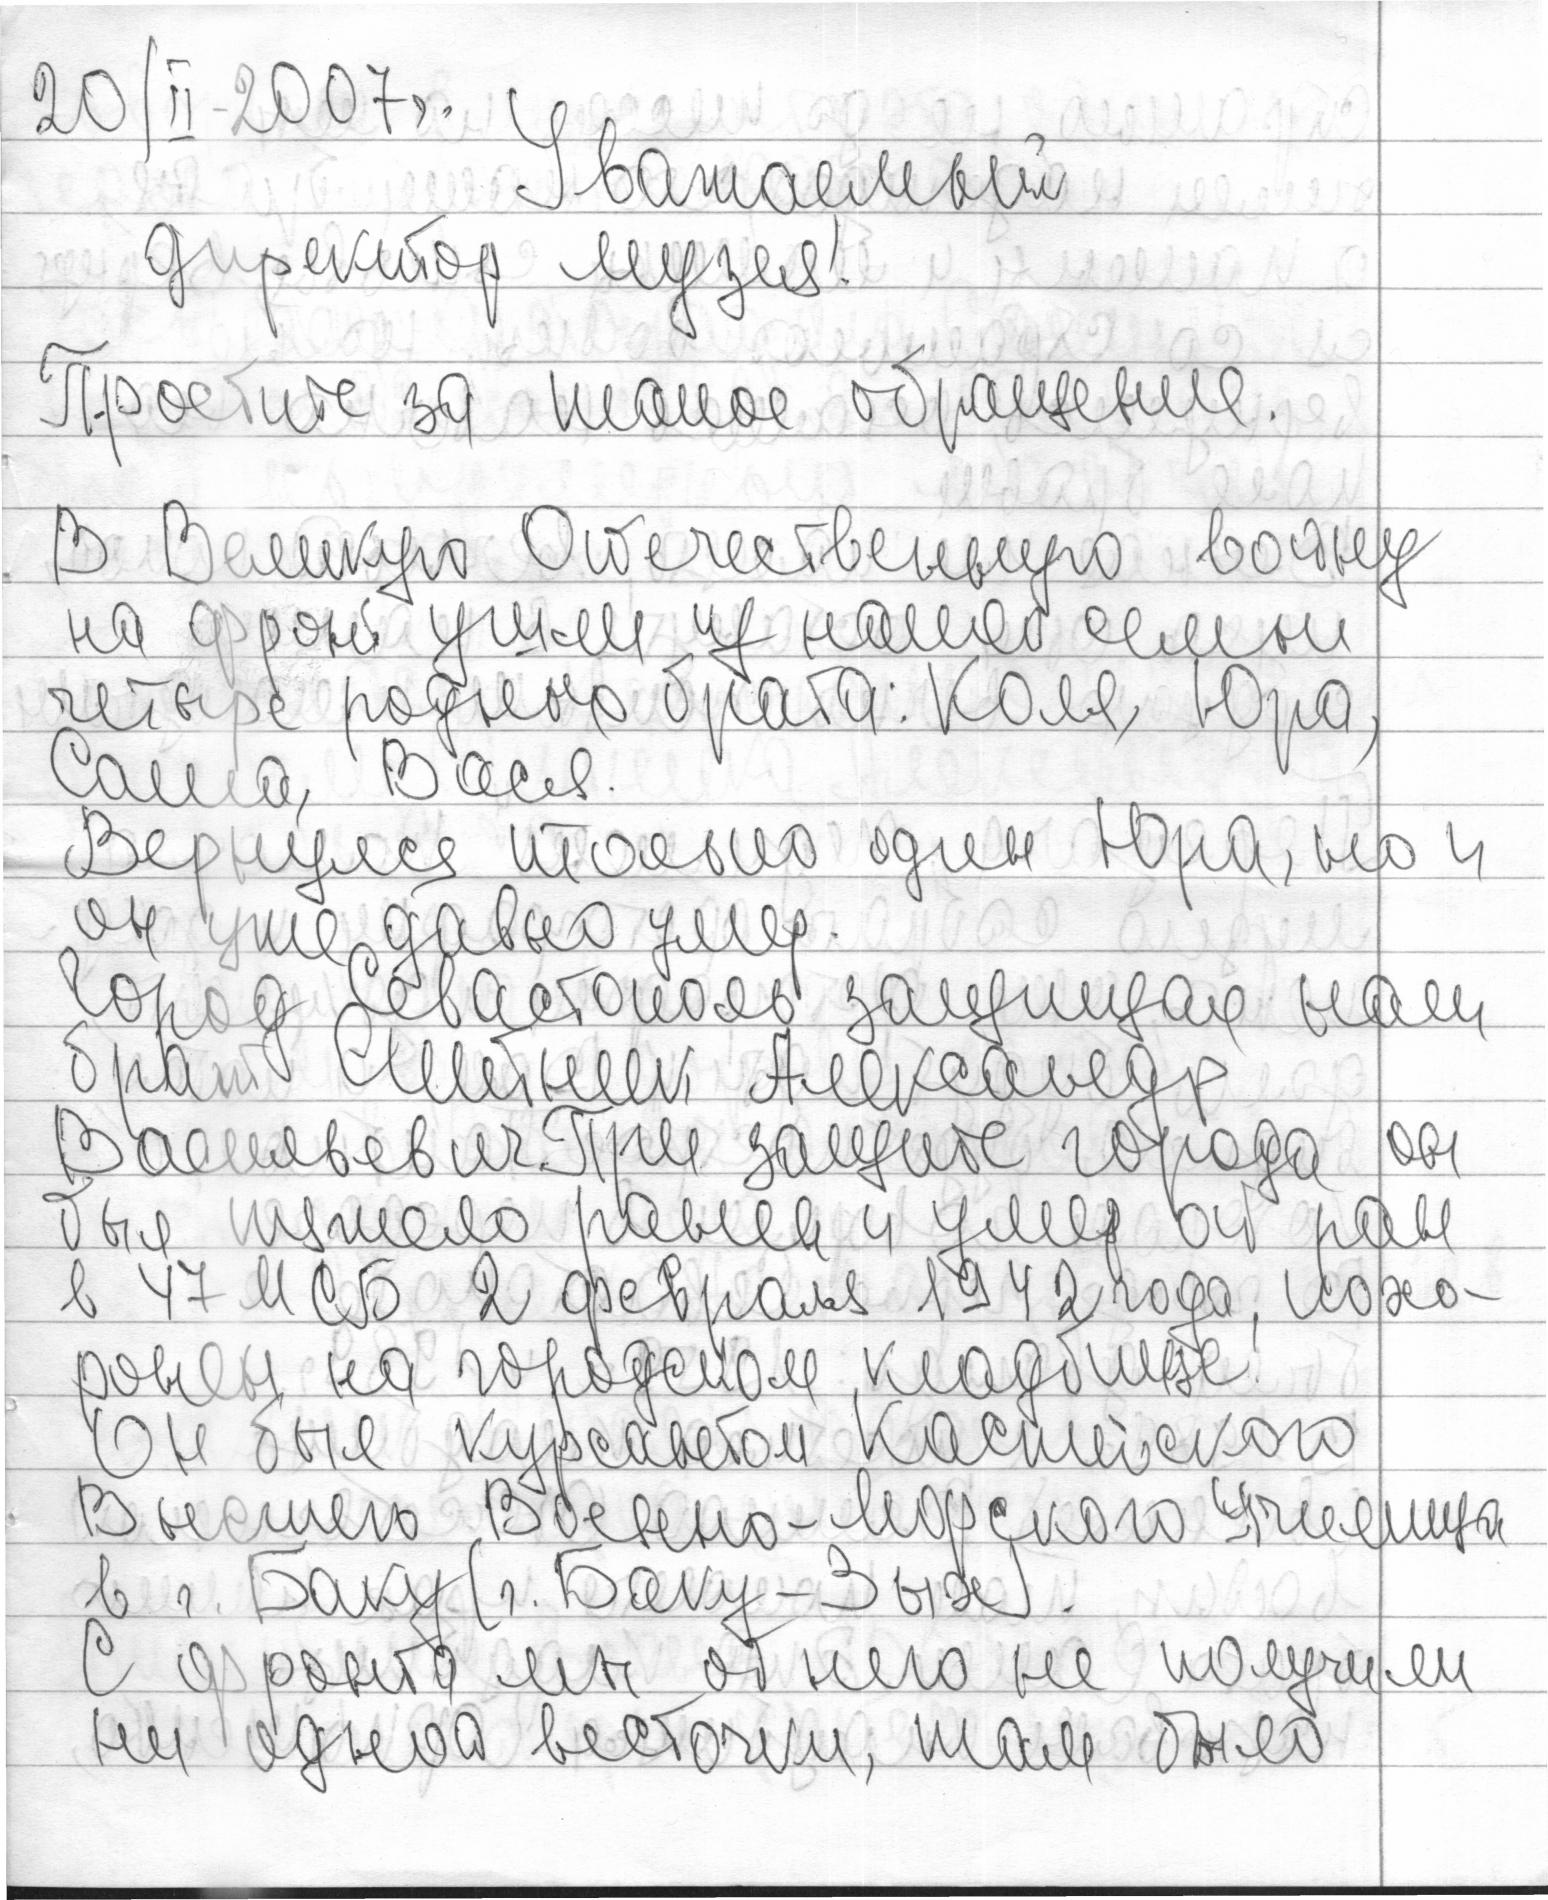 20/II-2007г.
Уважаемый
директор музея!
Простите за такое обращение.
В Великую Отечественную войну
на фронт ушли из нашей семьи
четыре родных брата: Коля, Юра,
Саша, Вася.
Вернулся только один Юра, но и
он уже давно умер.
Город Севастополь защищал наш
брат Ситник Александр
Васильевич. При защите города он
был тяжело ранен и умер от ран
в 47 МСБ 2 февраля 1942 года, похо-
ронен на городском кладбище!
Он был курсантом Каспийского
Высшего Военно-Морского Училища
в г. Баку (г. Баку-Зых).
С фронта мы от него не получили
ни одной весточки, там было